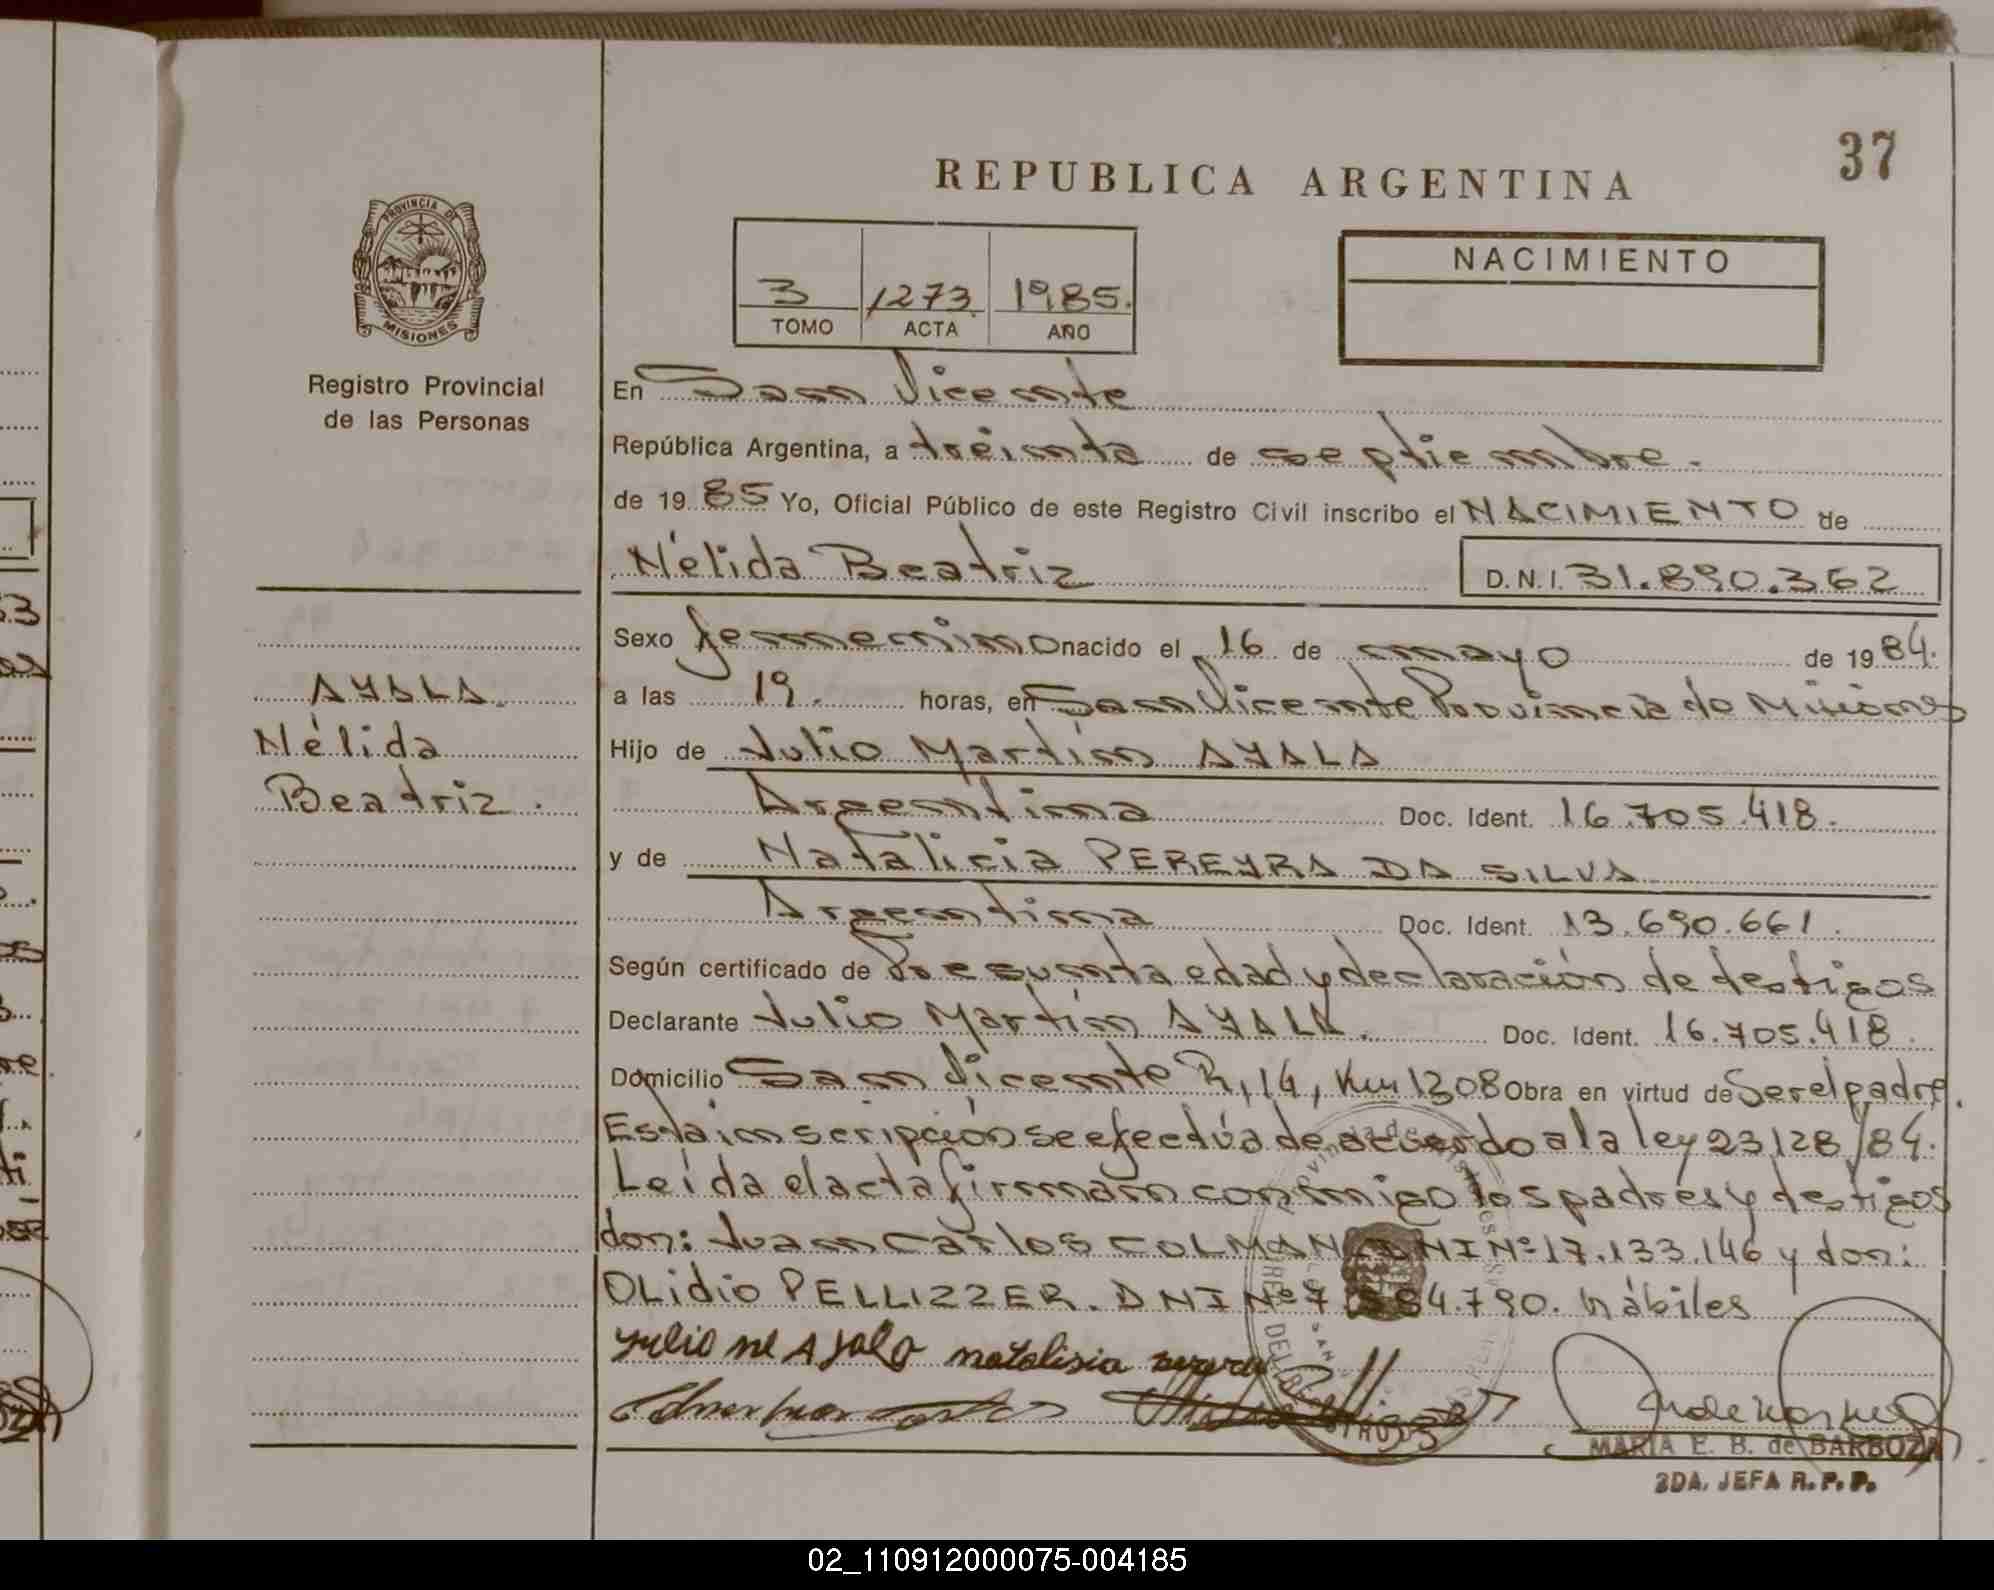 37
REPUBLICA ARGENTINA
PROVINCIA DE
MISIONES
Registro Provincial
de las Personas
3 1273. 1985.
TOMO ACTA AÑO
NACIMIENTO
En San Vicente
República Argentina, a treinta de septiembre.
de 19 85 Yo, Oficial Público de este Registro Civil inscribo el NACIMIENTO de
Nélida Beatriz D.N.I. 31.890.362
AYALA.
Nélida
Beatriz.
Sexo femenino nacido el 16 de mayo de 19 84.
a las 19. horas, en San Vicente Provincia de Misiones
Hijo de Julio Martín AYALA
Argentina Doc. Ident. 16.705.418.
y de Natalicia PEREYRA DA SILVA
Argentina Doc. Ident. 13.690.661.
Según certificado de Presunta edad y declaración de testigos
Declarante Julio Martín AYALA. Doc. Ident. 16.705.418.
Domicilio San Vicente R, 14, Km 1308 Obra en virtud de Ser el padre.
Esta inscripción se efectúa de acuerdo a la ley 23128/84.
Leída el acta firman conmigo los padres y testigos
don: Juan Carlos COLMAN DNI Nº 17.133.146 y don:
OLidio PELLIZZER. DNI Nº 4.790. hábiles
Julio M Ayala natalisia
MARIA E. B. de BARBOZA
2DA. JEFA R.P.P.
02_110912000075-004185